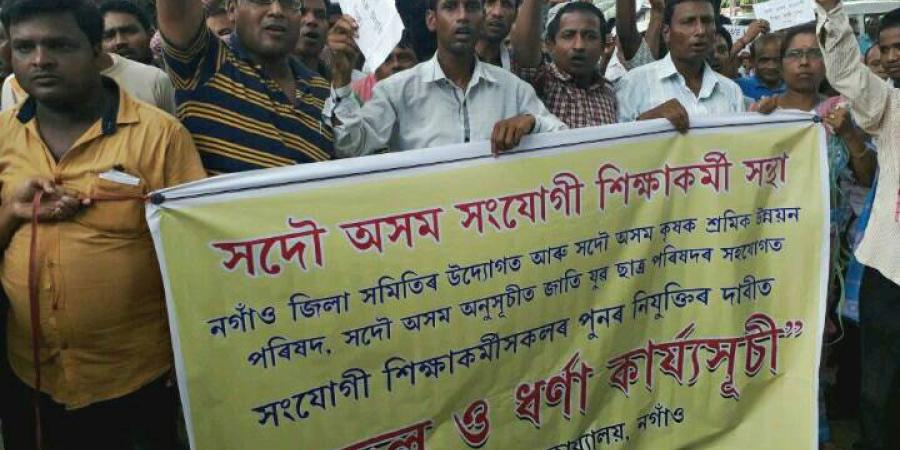 সদৌ অসম সংযোগী শিক্ষাকৰ্মী সন্থা
নগাঁও জিলা সমিতিৰ উদ্যোগত আৰু সদৌ অসম কৃষক শ্ৰমিক উন্নয়ন
পৰিষদ, সদৌ অসম অনুসূচীত জাতি যুৱ ছাত্ৰ পৰিষদৰ সহযোগত
সংযোগী শিক্ষাকৰ্মীসকলৰ পুনৰ নিযুক্তিৰ দাবীত
ও ধৰ্ণা কাৰ্য্যসূচী”
নগাঁও